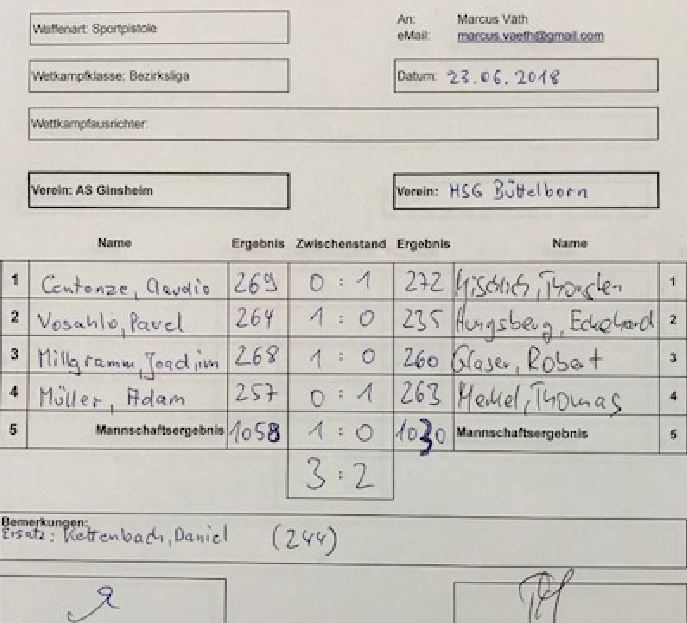 Waffenart: Sportpistole
An: Marcus Väth
eMail: marcus.vaeth@gmail.com
Wetkampfklasse: Bezirksliga
Datum: 23.06.2018
Wettkampfausrichter:
Verein: AS Ginsheim
Verein: HSG Büttelborn
Name Ergebnis Zwischenstand Ergebnis Name
1 Centonze, Claudio 269 0 : 1 272 1
2 Vosahlo, Pavel 264 1 : 0 235 Hungsberg, Eckehard 2
3 Millgramm, Joachim 268 1 : 0 260 Glaser, Robert 3
4 Müller, Adam 257 0 : 1 263 Merkel, Thomas 4
5 Mannschaftsergebnis 1058 1 : 0 1030 Mannschaftsergebnis 5
3 : 2
Bemerkungen:
Ersatz: Kettenbach, Daniel (244)